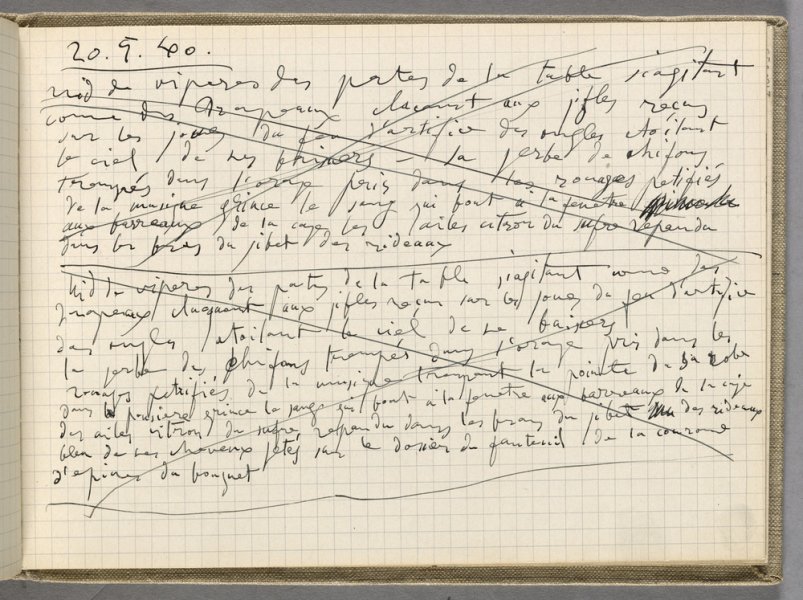 20.5.40.
nid de viperes des pattes de la table s'agitant
comme des drapeaux claquant aux gifles reçus
sur les joues du feu d'artifice des ongles étoilant
le ciel de ses baisers — la gerbe de chifons
trempés dans l'orage pris dans les rouages petrifiés
de la musique grince le sang qui bout a la fenêtre
aux barreaux de la cage les ailes citron du répandu
dans les bras du gibet des rideaux
Nid de viperes des pattes de la table s'agitant comme des
drapeaux claquant aux gifles reçus sur les joues du feu d'artifice
des ongles etoilant le ciel de se baisers
la gerbe des chifons trempés dans l'orage pris dans les
rouages petrifiés de la musique trempant la pointe de sa robe
dans la pousiere grince le sang qui bout a la fenetre aux barreaux de la cage
des ailes citron du repandu dans les bras du gibet des rideaux
bleu de ses cheveux jetés sur le dossier du fauteuil de la couronne
d'epines du bouquet